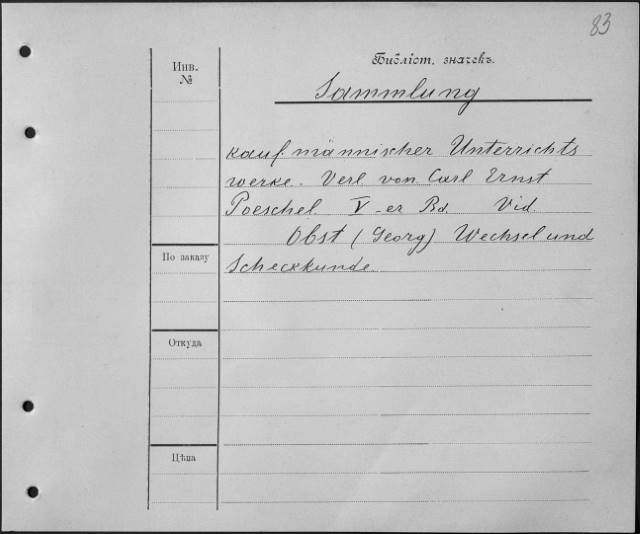 83
Инв.
№
Библіот. значекъ.
Sammlung
kaufmännischer Unterrichts
werke. Verl von Carl Ernst
Poeschel. V-er Bd. Vid.
Obst (Georg) Wechsel und
Scheckkunde.
По заказу
Откуда
Цѣна